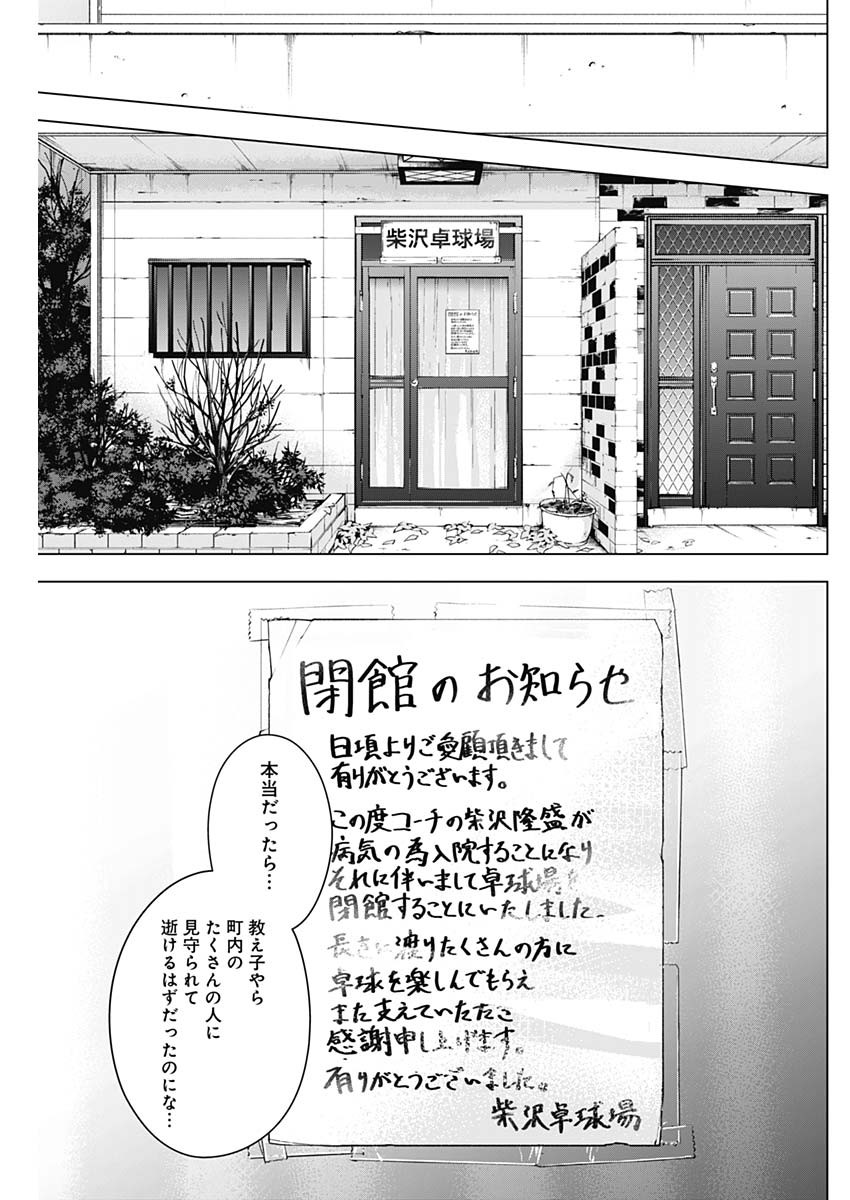 柴沢卓球場
閉館のお知らせ
閉館のお知らせ
日項よりご愛顧頂きまして
有りがとうございます。
この度コーチの柴沢隆盛が
病気の為入院することになり
それに伴いまして卓球場を
閉館することにいたしました。
長きに渡りたくさんの方に
卓球を楽しんでもらえ
また支えていただこ
感謝申し上げます。
有りがとうございました。
柴沢卓球場
本当だったら…
教え子やら
町内の
たくさんの人に
見守られて
逝けるはずだったのにな…